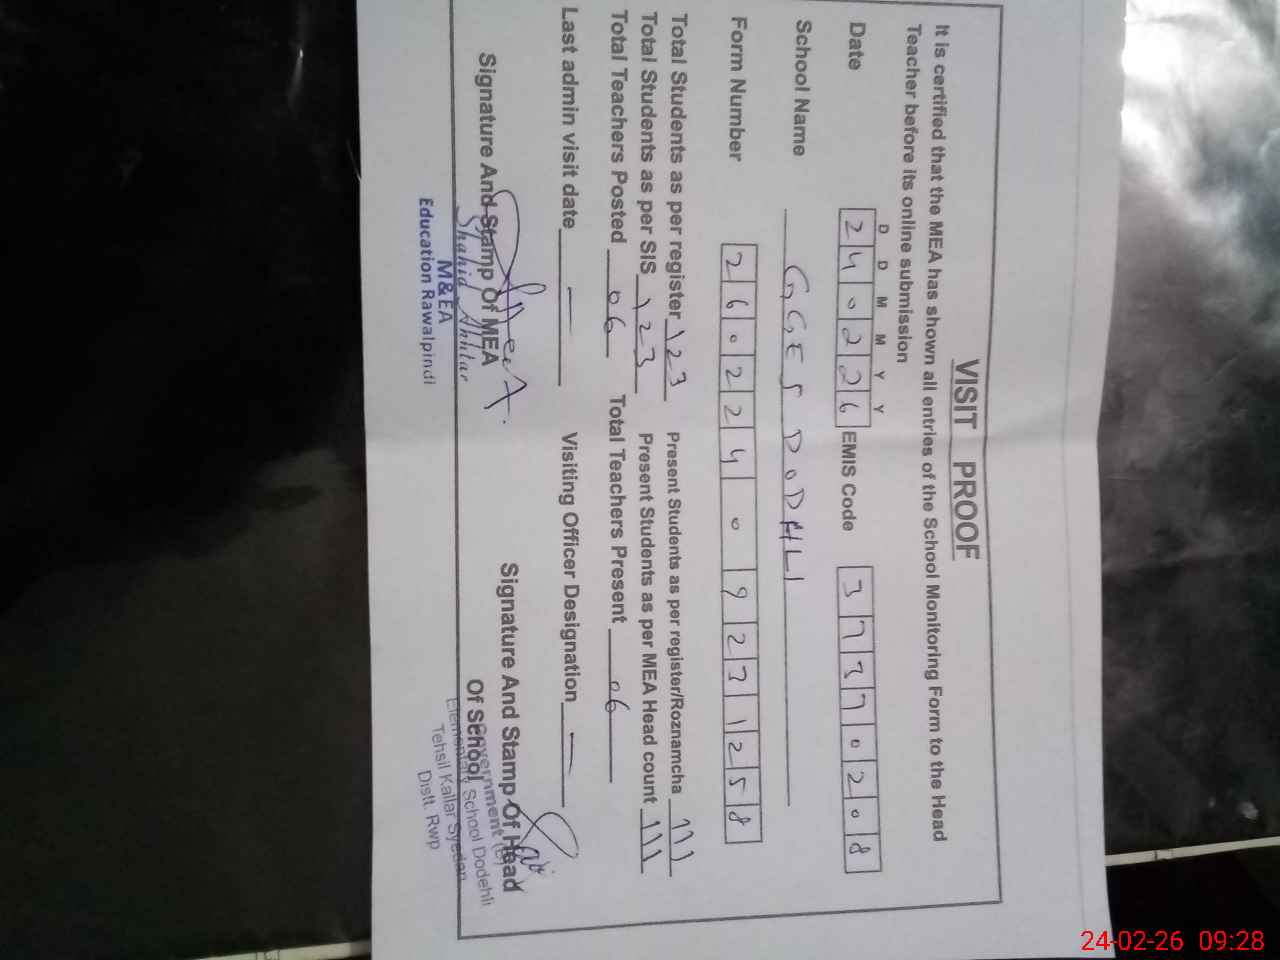 VISIT PROOF
It is certified that the MEA has shown all entries of the School Monitoring Form to the Head
Teacher before its online submission
D D M M Y Y
Date 240226 EMIS Code 37370208
School Name GGES DODHLI
Form Number 26022409231258
Total Students as per register 123 Present Students as per register/Roznamcha 111
Total Students as per SIS 123 Present Students as per MEA Head count 111
Total Teachers Posted 06 Total Teachers Present 06
Last admin visit date — Visiting Officer Designation —
Signature And Stamp Of MEA
Shahid Akhtar
M&EA
Education Rawalpindi
Signature And Stamp Of Head
Of School
Government
Elementary School Dodehli
Tehsil Kallar Syedan
Distt. Rwp
24-02-26 09:28